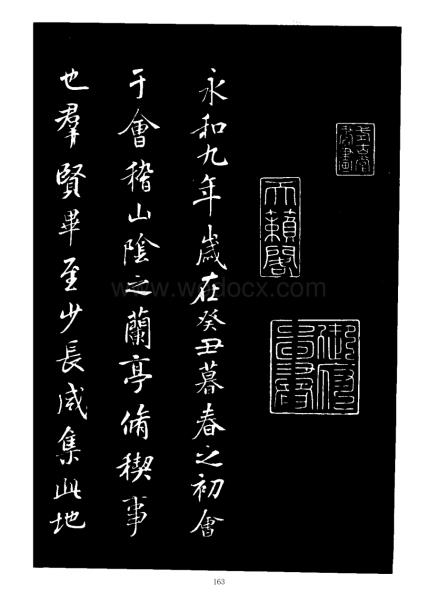 式古堂書畫
天籟閣
永和九年歲在癸丑暮春之初會
于會稽山陰之蘭亭脩稧事
也羣賢畢至少長咸集此地
163